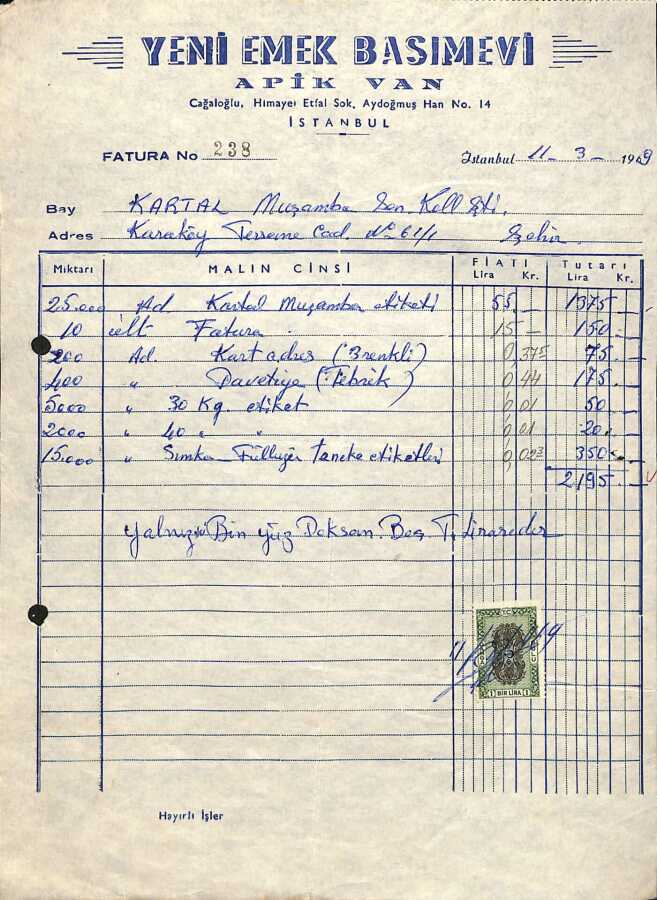 YENİ EMEK BASIMEVİ
APİK VAN
Cağaloğlu, Himayei Etfal Sok. Aydoğmuş Han No. 14
İSTANBUL
FATURA No 238
İstanbul 11-3-1969
Bay KARTAL Muşamba San. Koll Şti.
Adres Karaköy Tersane Cad. No 61/1 Şehir
Miktarı MALIN CİNSİ FİATI Tutarı
Lira Kr. Lira Kr.
25.000 Ad. Kartal Muşamba etiketi 55 — 1375 —
10 cilt Fatura 15 — 150 —
200 Ad. Kart adres (3 renkli) 0,375 75. —
400 " Davetiye (Tebrik) 0,44 175. —
5000 " 30 Kg. etiket 0,01 50 —
2000 " 40 " " 0,01 20. —
15.000 " Teneke etiketleri 0,023 350. —
2195. —
Yalnız iki Bin yüz Doksan Beş T. Lirasıdır
T.C.
1 BİR LİRA 1
Hayırlı İşler